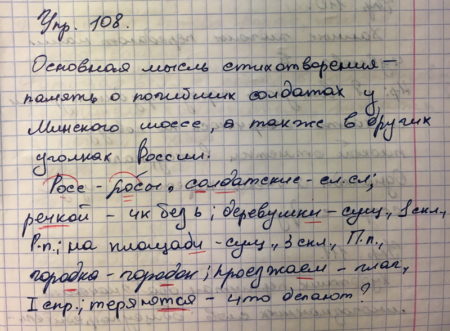 Упр. 108.
Основная мысль стихотворения –
память о погибших солдатах у
Минского шоссе, а также в других
уголках России.
Росе - росы, солдатские - сл. сл;
речкой - чк без ь; деревушки - сущ., 1 скл.,
Р.п.; на площади - сущ., 3 скл., П.п.,
городка - городок; проезжаем - глаг.,
I спр.; теряются - что делают?